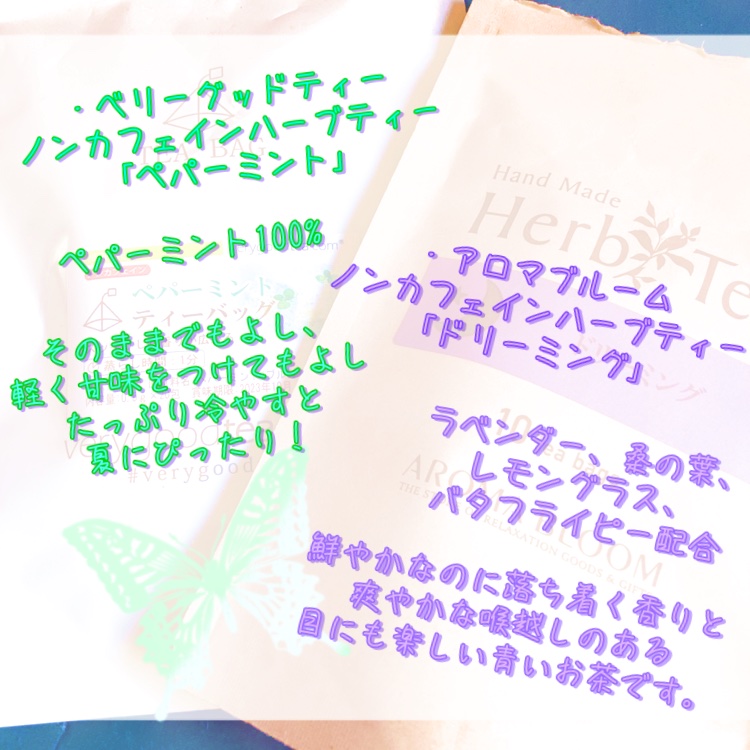 ・ベリーグッドティー
ノンカフェインハーブティー
「ペパーミント」
ペパーミント100%
そのままでもよし、
軽く甘味をつけてもよし
たっぷり冷やすと
夏にぴったり！
TEA BAG
ペパーミント
ティーバッグ
verygoodtea
#verygood
Hand Made
Herb Te
・アロマブルーム
ノンカフェインハーブティー
「ドリーミング」
ドリーミング
ラベンダー、桑の葉、
レモングラス、
バタフライピー配合
10 tea bags
AROMA BLOOM
THE STORE OF RELAXATION GOODS & GIFT
鮮やかなのに落ち着く香りと
爽やかな喉越しのある
目にも楽しい青いお茶です。